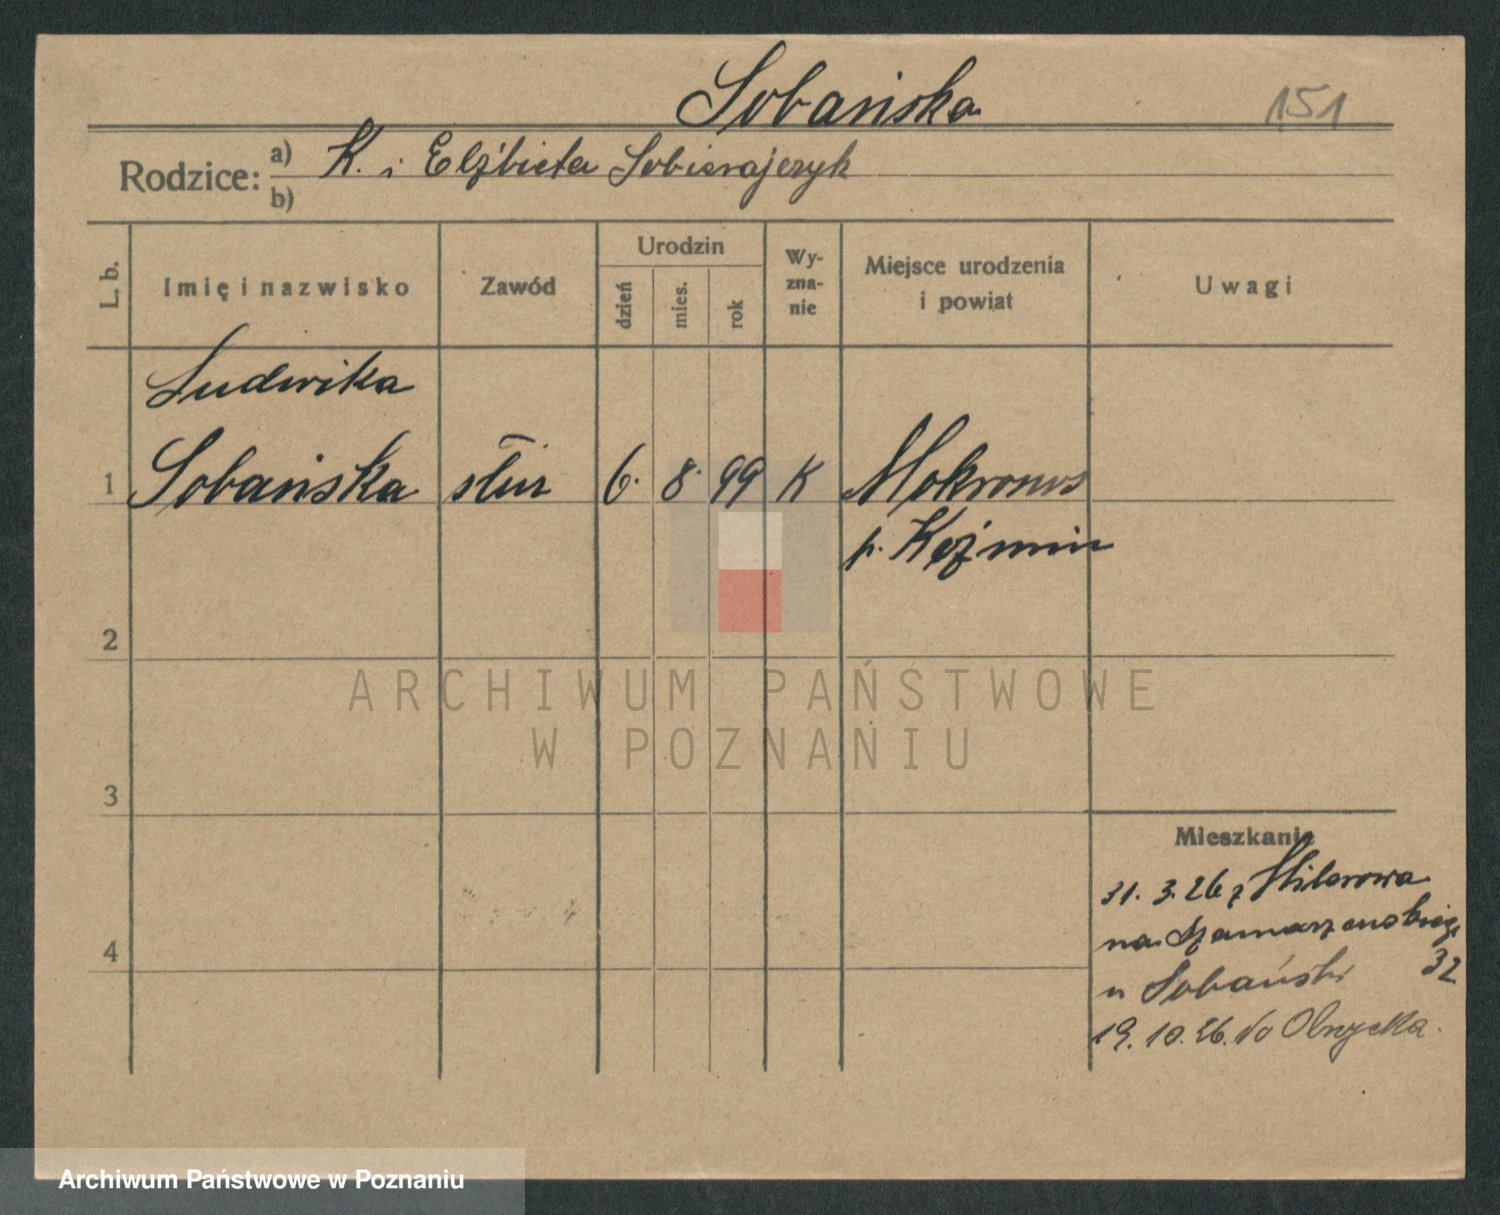 Sobańska
151
Rodzice: a) K. i Elżbieta Sobierajczyk
b)
L. b.
Imię i nazwisko
Zawód
Urodzin
dzień
mies.
rok
Wy-
zna-
nie
Miejsce urodzenia
i powiat
Uwagi
Ludwika
1 Sobańska służ 6. 8. 99 K Mokronos
p. Koźmin
2
ARCHIWUM PAŃSTWOWE
W POZNANIU
3
Mieszkanie
31. 3. 26 z
na
4
u Sobański 32
19. 10. 26. do Obrzycka.
Archiwum Państwowe w Poznaniu